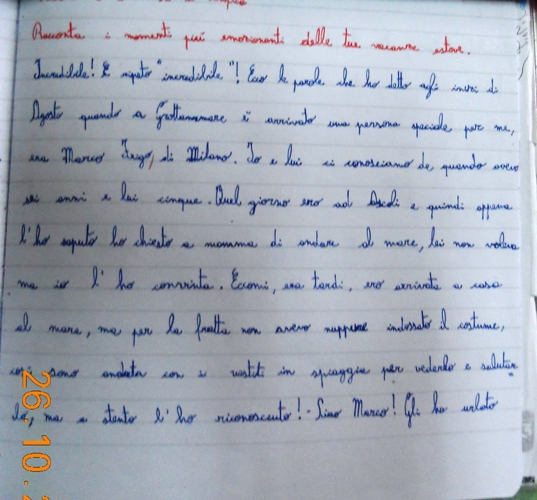 Racconta i momenti più emozionanti delle tue vacanze estive.
Incredibile! E ripeto "incredibile"! Ecco le parole che ho detto agli inizi di
Agosto quando a Grottammare è arrivato una persona speciale per me,
era Marco Frigo, di Milano. Io e lui ci conosciamo da quando avevo
sei anni e lui cinque. Quel giorno ero ad Ascoli e quindi appena
l'ho saputo ho chiesto a mamma di andare al mare, lei non voleva
ma io l'ho convinta. Eccomi, era tardi, ero arrivata a casa
al mare, ma per la fretta non avevo nuppure indossato il costume,
così sono andata con i vestiti in spiaggia per vederlo e salutar
lo, ma a stento l'ho riconosciuto! - Ciao Marco! Gli ho urlato
26.10.